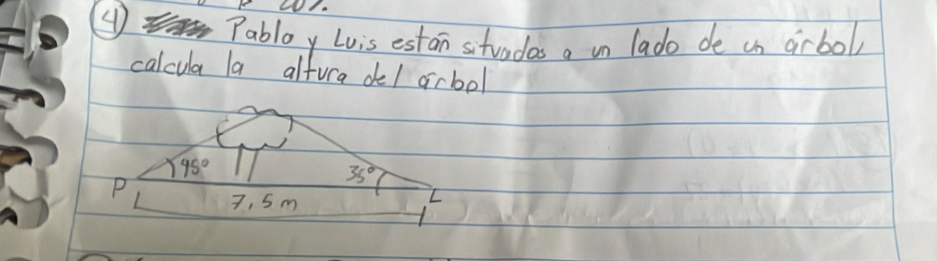 4) Pablo y Luis están situados a un lado de un árbol,
calcula la altura del árbol
45° 35°
P L
7,5 m